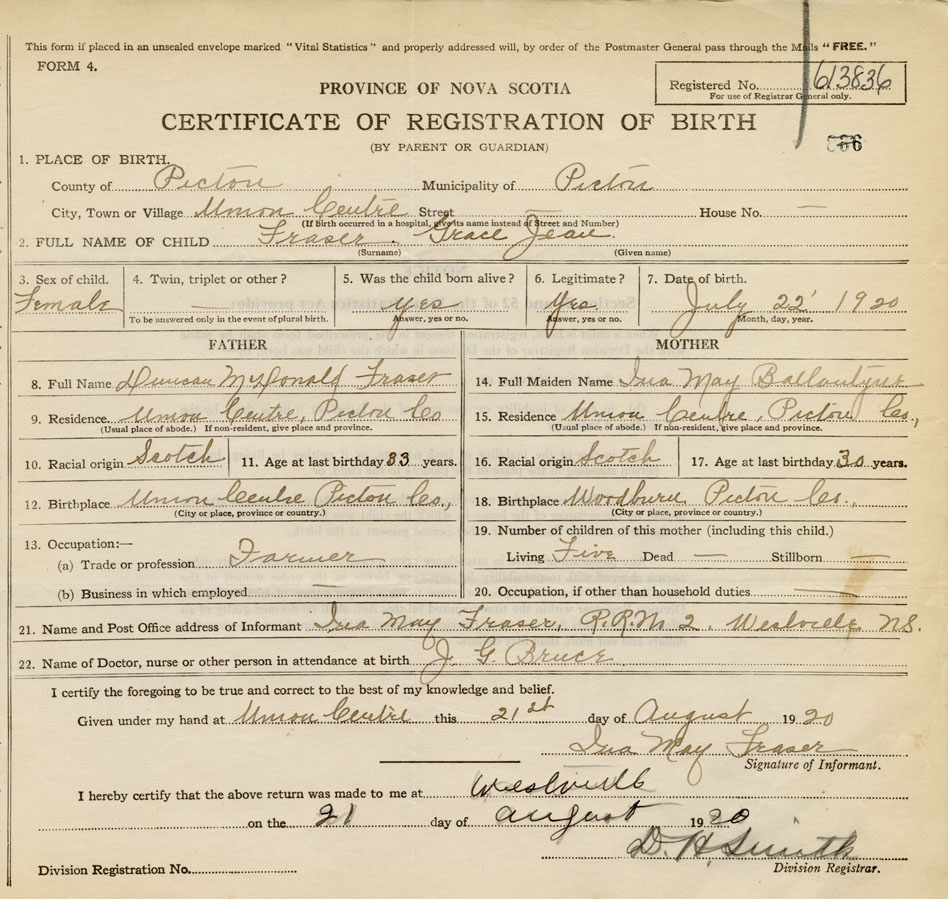 This form if placed in an unsealed envelope marked "Vital Statistics" and properly addressed will, by order of the Postmaster General pass through the Mails "FREE."
FORM 4.
PROVINCE OF NOVA SCOTIA
Registered No. 613836
For use of Registrar General only.
CERTIFICATE OF REGISTRATION OF BIRTH
(BY PARENT OR GUARDIAN)
1. PLACE OF BIRTH.
County of Pictou Municipality of Pictou
City, Town or Village Union Centre Street — House No. —
(If birth occurred in a hospital, give its name instead of Street and Number)
2. FULL NAME OF CHILD Fraser. Grace Jean.
(Surname) (Given name)
3. Sex of child. 4. Twin, triplet or other? 5. Was the child born alive? 6. Legitimate? 7. Date of birth.
Female — yes yes July 22' 1920
To be answered only in the event of plural birth. Answer, yes or no. Answer, yes or no. Month, day, year.
FATHER MOTHER
8. Full Name Duncan McDonald Fraser 14. Full Maiden Name Ina May Ballantyne
9. Residence Union Centre, Pictou Co 15. Residence Union Centre, Pictou Co.,
(Usual place of abode.) If non-resident, give place and province. (Usual place of abode.) If non-resident, give place and province.
10. Racial origin Scotch 11. Age at last birthday 33 years. 16. Racial origin Scotch 17. Age at last birthday 30 years.
12. Birthplace Union Centre Pictou Co., 18. Birthplace Woodburn Pictou Co.,
(City or place, province or country.) (City or place, province or country.)
13. Occupation:— 19. Number of children of this mother (including this child.)
(a) Trade or profession Farmer Living Five Dead — Stillborn —
(b) Business in which employed — 20. Occupation, if other than household duties —
21. Name and Post Office address of Informant Ina May Fraser, R.R. No 2. Westville N.S.
22. Name of Doctor, nurse or other person in attendance at birth J. G. Bruce
I certify the foregoing to be true and correct to the best of my knowledge and belief.
Given under my hand at Union Centre this 21st day of August 1920
Ina May Fraser
Signature of Informant.
I hereby certify that the above return was made to me at Westville
on the 21 day of August 1920
D. H. Smith
Division Registration No. Division Registrar.